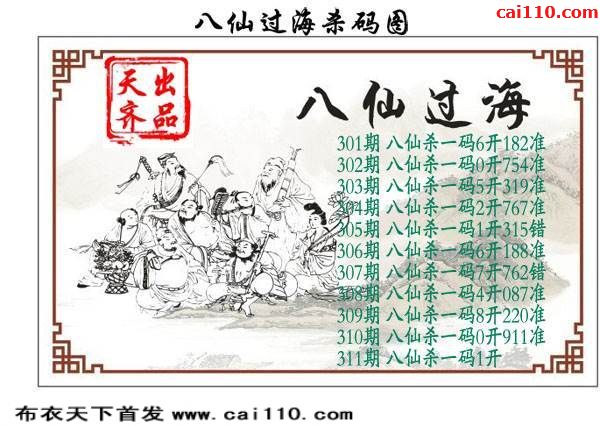 八仙过海杀码图
cai110.com
天齐
出品
八仙过海
301期 八仙杀一码6开182准
302期 八仙杀一码0开754准
303期 八仙杀一码5开319准
304期 八仙杀一码2开767准
305期 八仙杀一码1开315错
306期 八仙杀一码6开188准
307期 八仙杀一码7开762错
308期 八仙杀一码4开087准
309期 八仙杀一码8开220准
310期 八仙杀一码0开911准
311期 八仙杀一码1开
布衣天下首发 www.cai110.com